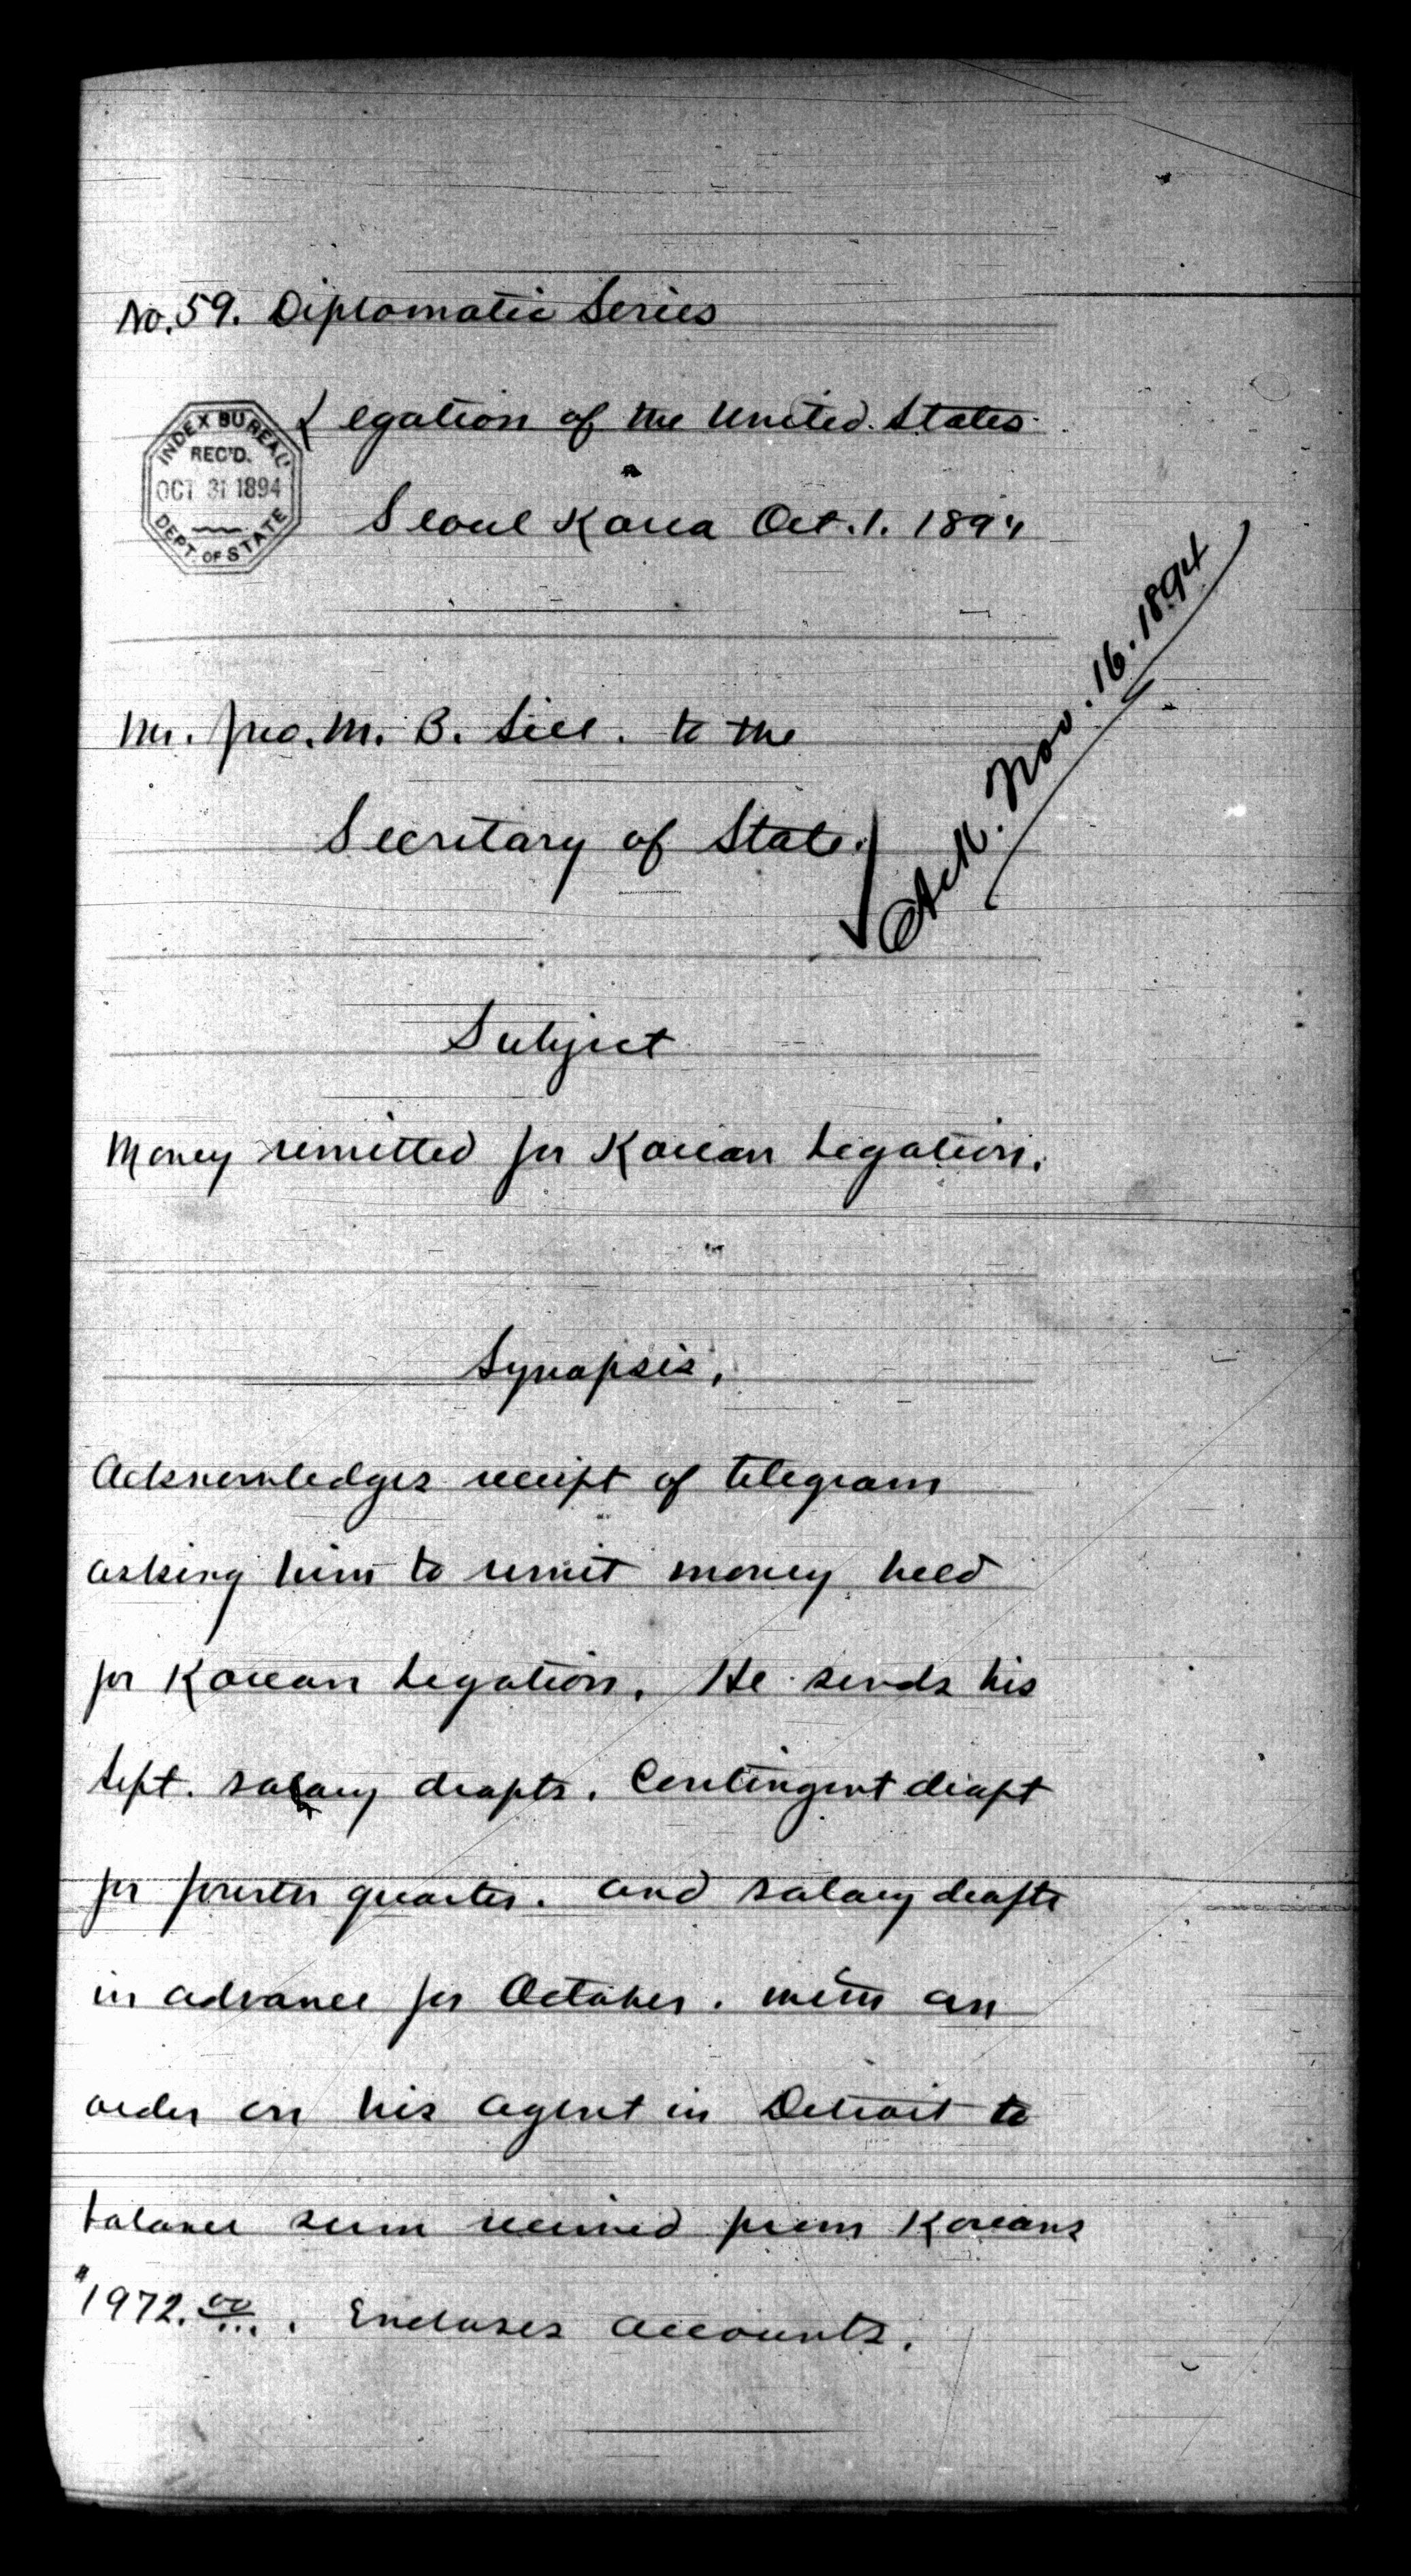 No. 59. Diplomatic Series
Legation of the United States
Seoul Korea Oct. 1. 1894
INDEX BUREAU
REC'D.
OCT 31 1894
DEPT. OF STATE
Mr. Jno. M. B. Sill. to the
Secretary of State.
Ack. Nov. 16. 1894
Subject
Money remitted for Korean Legation.
Synopsis.
Acknowledges receipt of telegram
asking him to remit money held
for Korean Legation. He sends his
Sept. salary drafts. Contingent draft
for fourth quarter. and salary drafts
in advance for October. with an
order on his agent in Detroit to
balance sum received from Koreans
$1972.00. Encloses accounts.